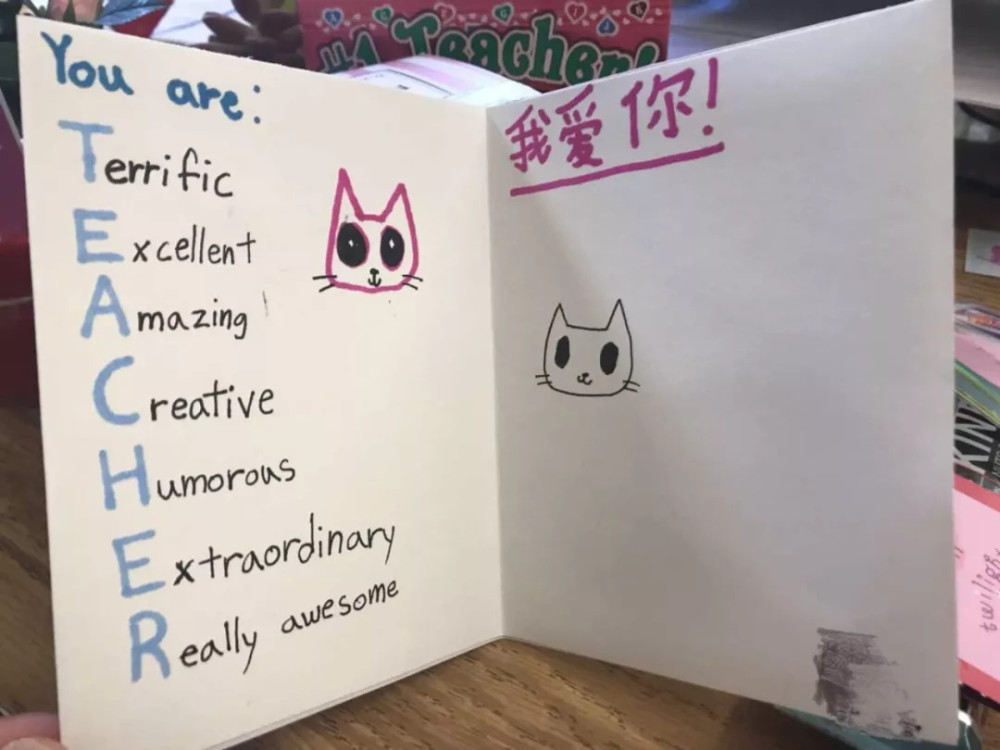 #1 Teacher!
You are:
Terrific
Excellent
Amazing
Creative
Humorous
Extraordinary
Really awesome
我爱你!
KIN
twilight